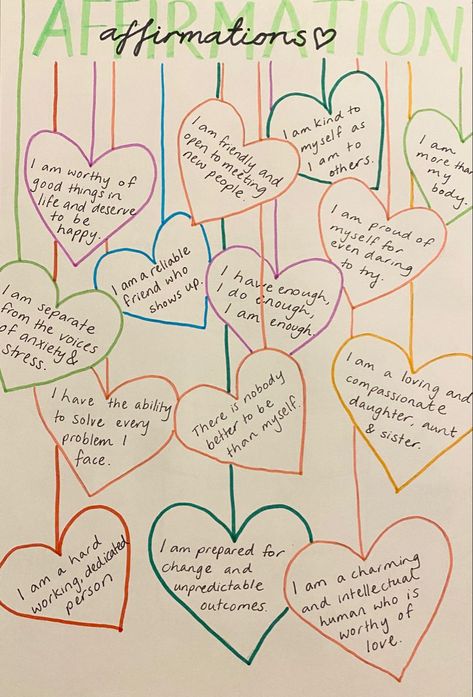 AFFIRMATION
affirmations
I am kind to
myself as
I am to
others.
I am friendly and
open to meeting
new people.
I am
more than
my
body.
I am worthy of
good things in
life and deserve
to be
happy.
I am proud of
myself for
even daring
to try.
I am a reliable
friend who
shows up.
I have enough,
I do enough,
I am enough.
I am separate
from the voices
of anxiety &
stress.
I am a loving and
compassionate
daughter, aunt
& sister.
I have the ability
to solve every
problem I
face.
There is nobody
better to be
than myself.
I am a hard
working, dedicated
person
I am prepared for
change and
unpredictable
outcomes.
I am a charming
and intellectual
human who is
worthy of
love.